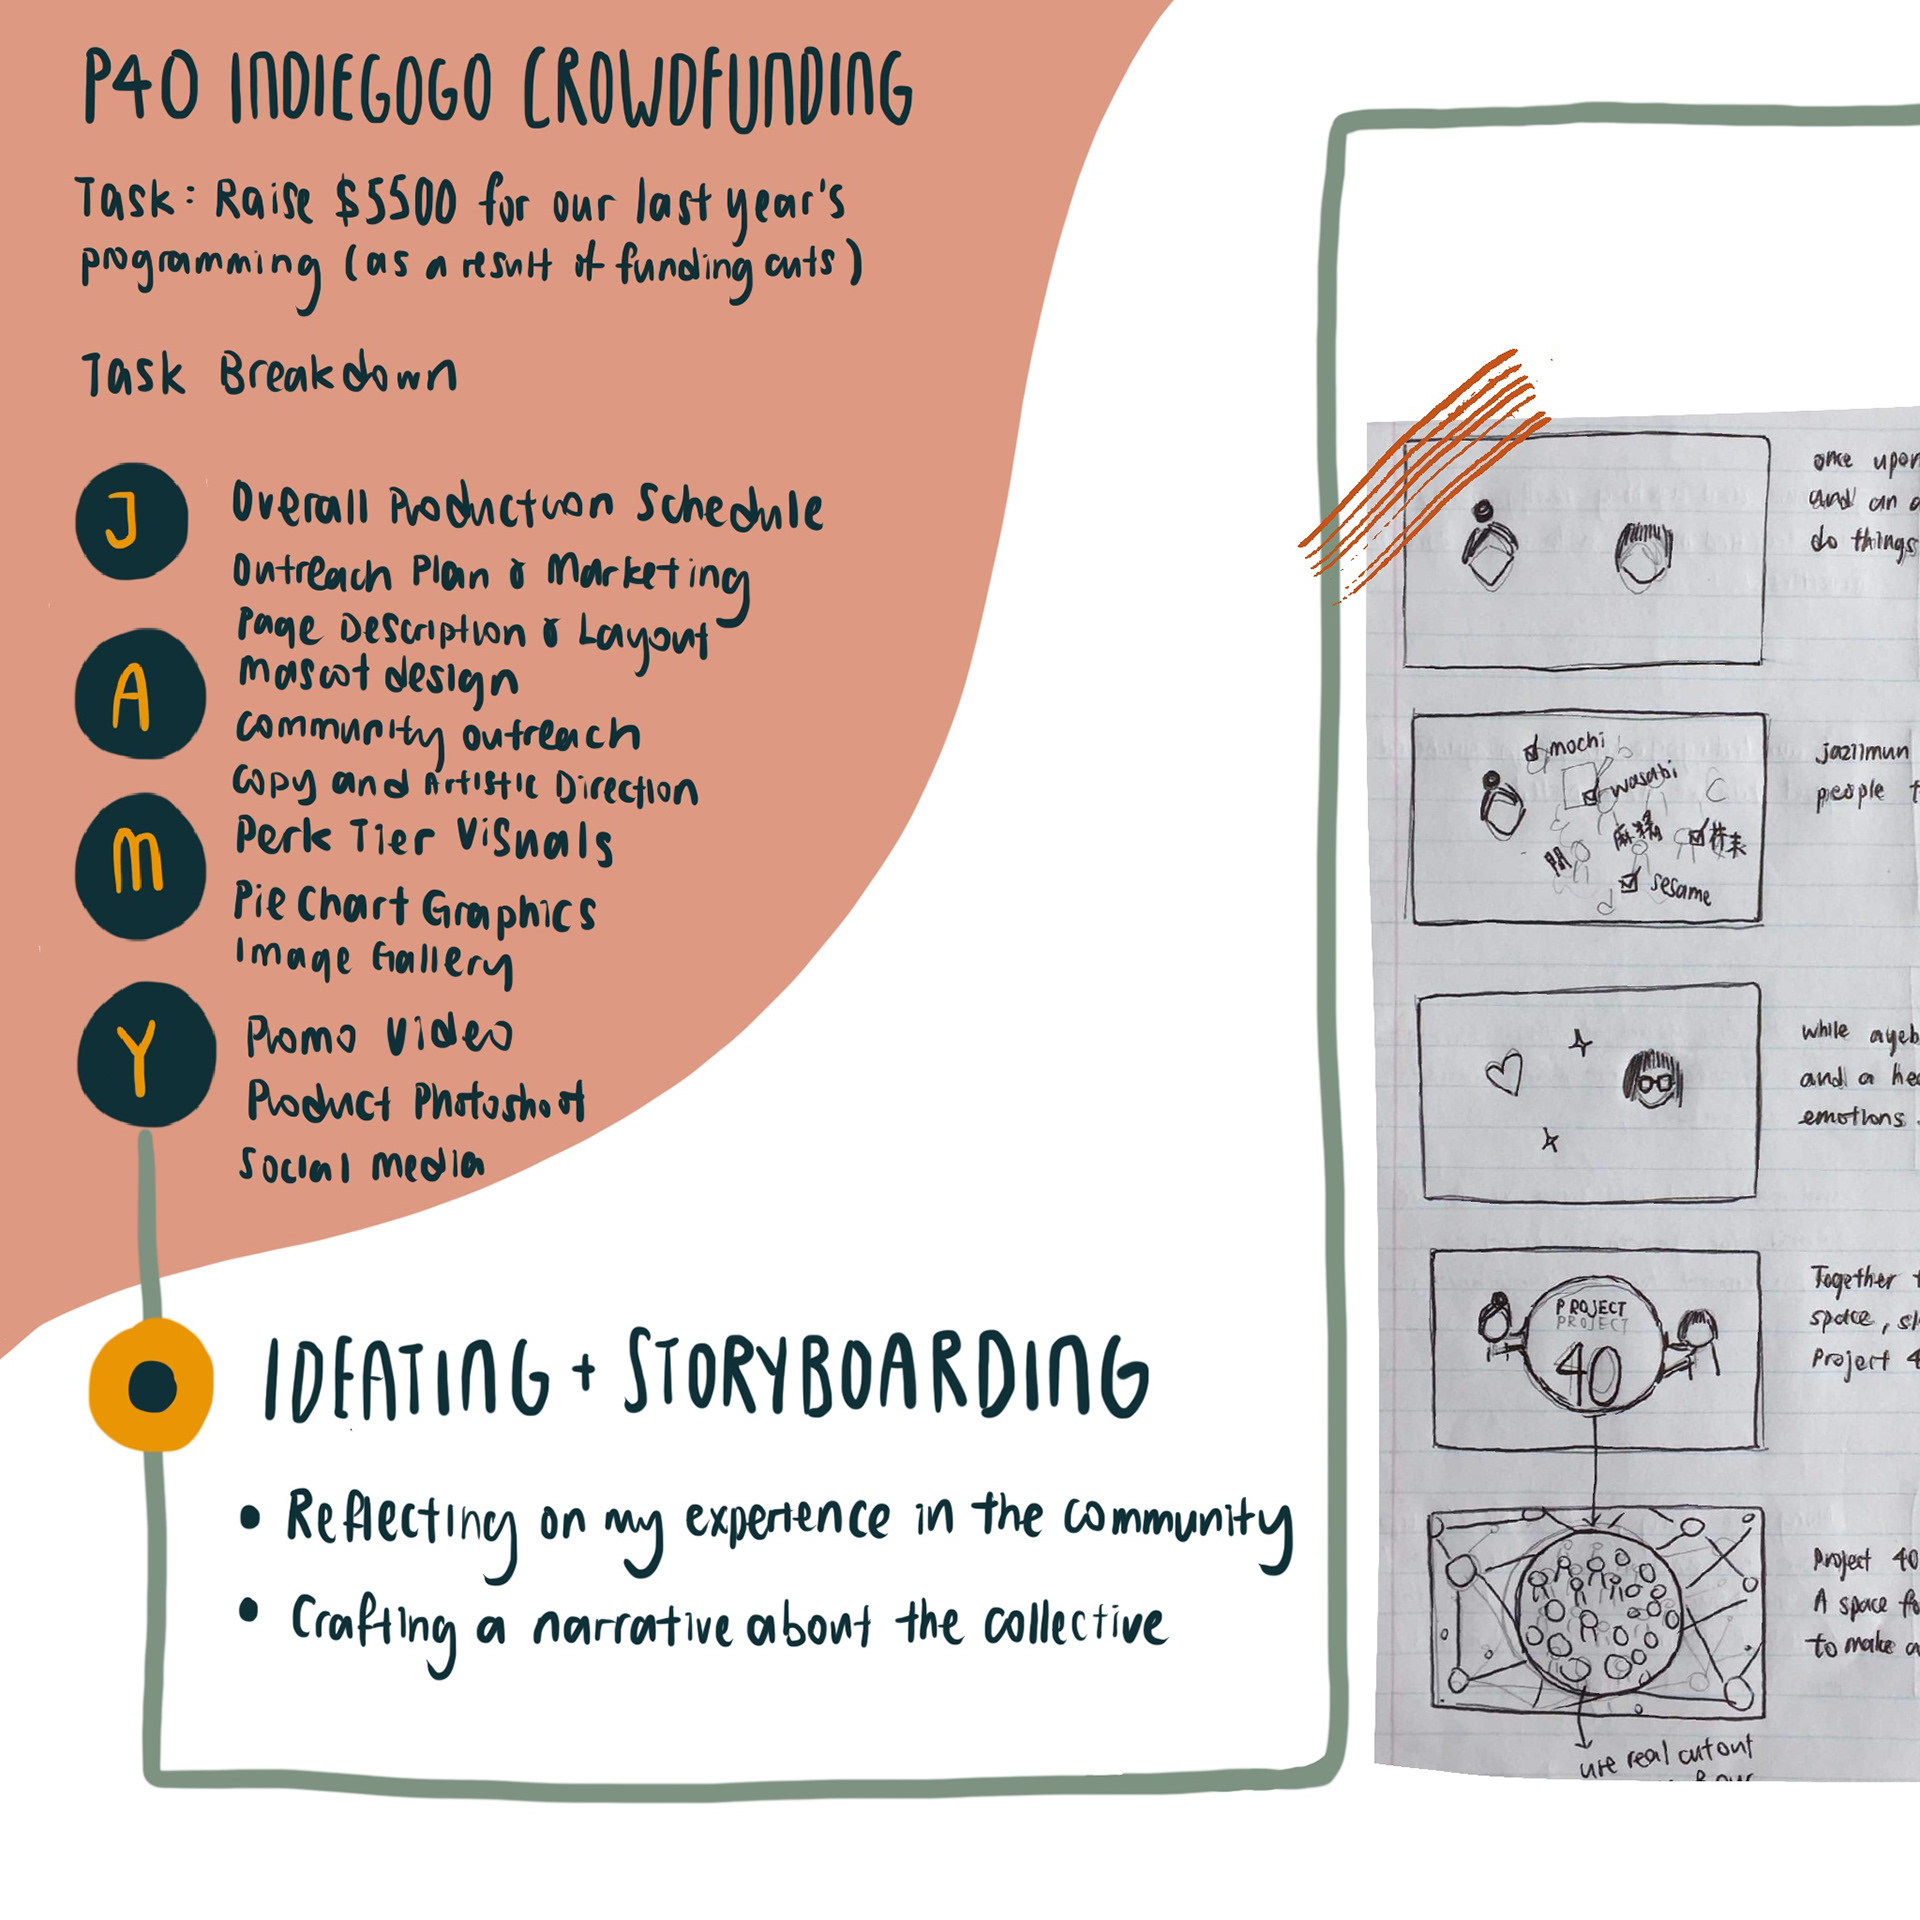 P40 INDIEGOGO CROWDFUNDING
Task: Raise $5500 for our last year's
programming (as a result of funding cuts)
Task Breakdown
J
Overall Production Schedule
Outreach Plan & Marketing
Page Description & Layout
A
mascot design
community outreach
Copy and Artistic Direction
M
Perk Tier Visuals
Pie Chart Graphics
Image Gallery
Y
Promo Video
Product Photoshoot
Social media
IDEATING + STORYBOARDING
• Reflecting on my experience in the community
• Crafting a narrative about the collective
once upon
and an a
do things
mochi
wasabi
麻糬
芥末
sesame
jazlimun
people t
while ayeb
and a hea
emotions.
PROJECT
PROJECT
40
Together t
space, sl
Project 4
Project 40
A space fo
to make a
use real cutout